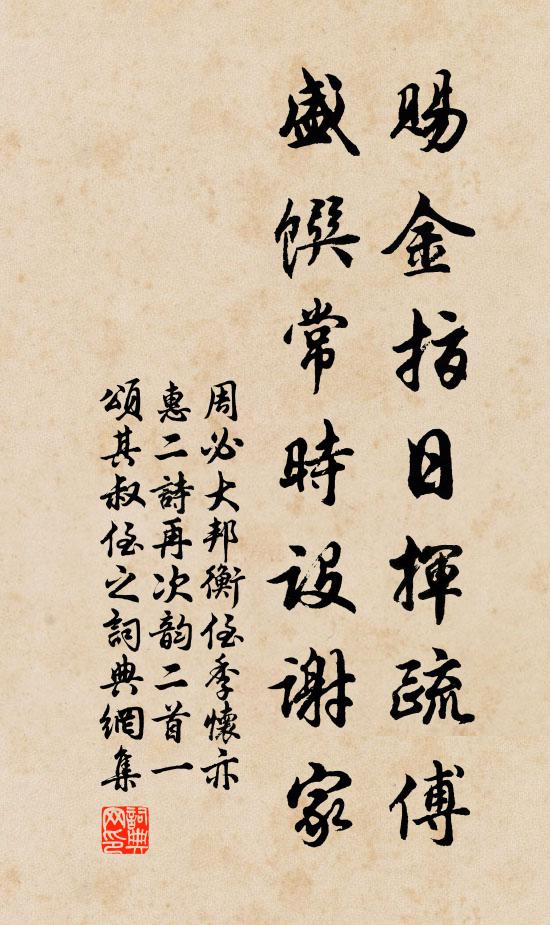 賜金指日揮疏傅
盛饌常時設謝家
周必大邦衡侄季懷亦
惠二詩再次韵二首一
頌其叔侄之詞典網集
詞典网印